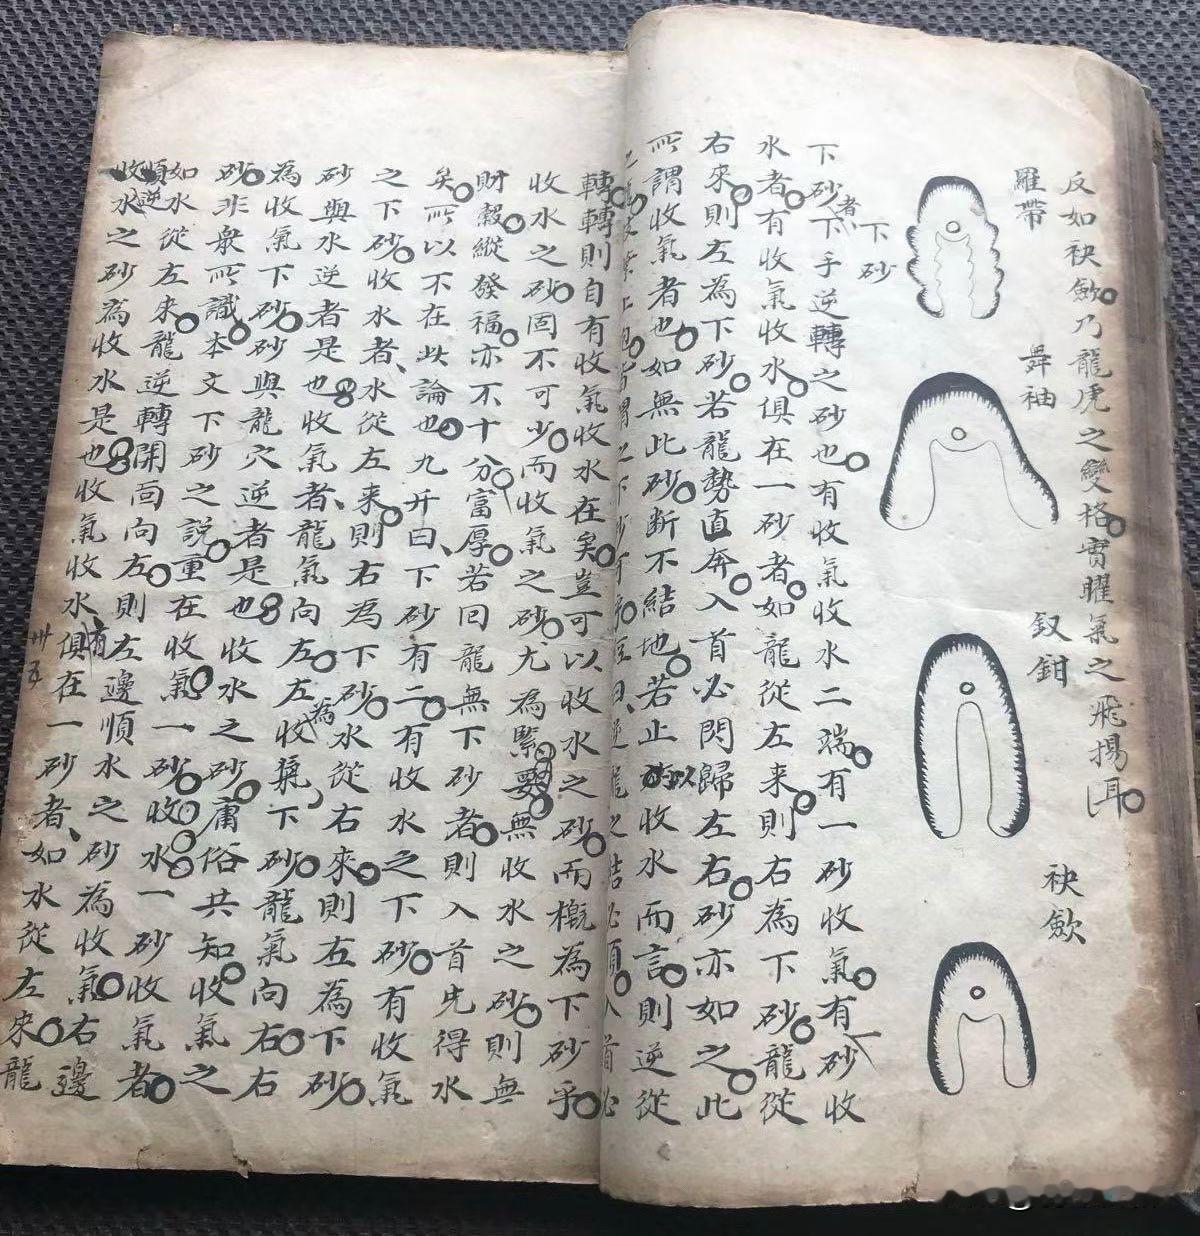 反如袂歛乃龍虎之變格實曜氣之飛揚耳
羅帶
舞袖
釵鉗
袂歛
下砂
下砂者下手逆轉之砂也有收氣收水二端有一砂收氣有一砂收
水者有收氣收水俱在一砂者如龍從左來則右為下砂龍從
右來則左為下砂若龍勢直奔入首必閃歸左右砂亦如之此
所謂收氣者也如無此砂断不結地若止以收水而言則逆從
轉轉則自有收氣收水在矣豈可以收水之砂而概為下砂乎
收水之砂固不可少而收氣之砂尤為緊要無收水之砂則無
財穀縱發福亦不十分富厚若回龍無下砂者則入首先得水
矣所以不在此論也九升曰下砂有二有收水之下砂有收氣
之下砂收水者水從左来則右為下砂水從右來則左為下砂
砂與水逆者是也收氣者龍氣向左左為收氣下砂龍氣向右右
為收氣下砂砂與龍穴逆者是也收水之砂庸俗共知收氣之
砂非衆所識本文下砂之說重在收氣一砂收水一砂收氣者
如水從左来龍逆轉開靣向左則左邊順水之砂為收氣右邊
順逆收水之砂為收水是也收氣收水有俱在一砂者如水從左來龍
卅五